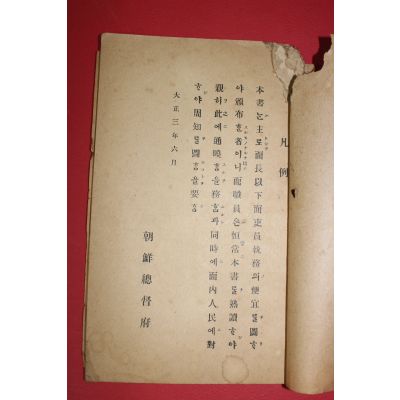 凡例
本書ᄂᆞᆫ主로面長以下面吏員執務의便宜ᄅᆞᆯ圖ᄒᆞ
야頒布ᄒᆞᆫ者이니面職員은恒常本書ᄅᆞᆯ熟讀ᄒᆞ야
親히此에通曉ᄒᆞᆷ을務ᄒᆞᆷ과同時에面內人民에對
ᄒᆞ야周知ᄅᆞᆯ圖ᄒᆞᆷ을要ᄒᆞᆷ
大正三年六月
朝鮮總督府